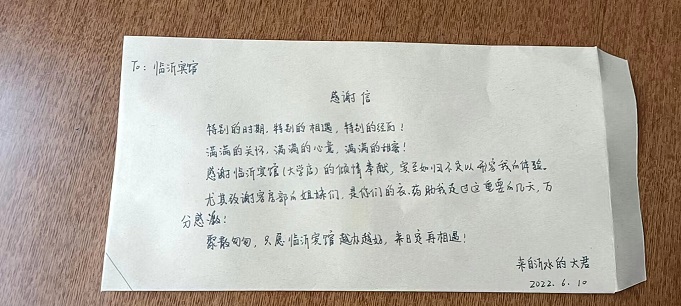 To：临沂宾馆
感谢信
特别的时期，特别的相遇，特别的经历！
满满的关怀，满满的心意，满满的相亲！
感谢临沂宾馆（大学店）的倾情奉献，宾至如归不足以形容我的体验。
尤其致谢客房部的姐妹们，是你们的衣、药助我走过这重要的几天，万
分感激！
聚散匆匆，只愿临沂宾馆越办越好，来日定再相遇！
来自沂水的大君
2022.6.10